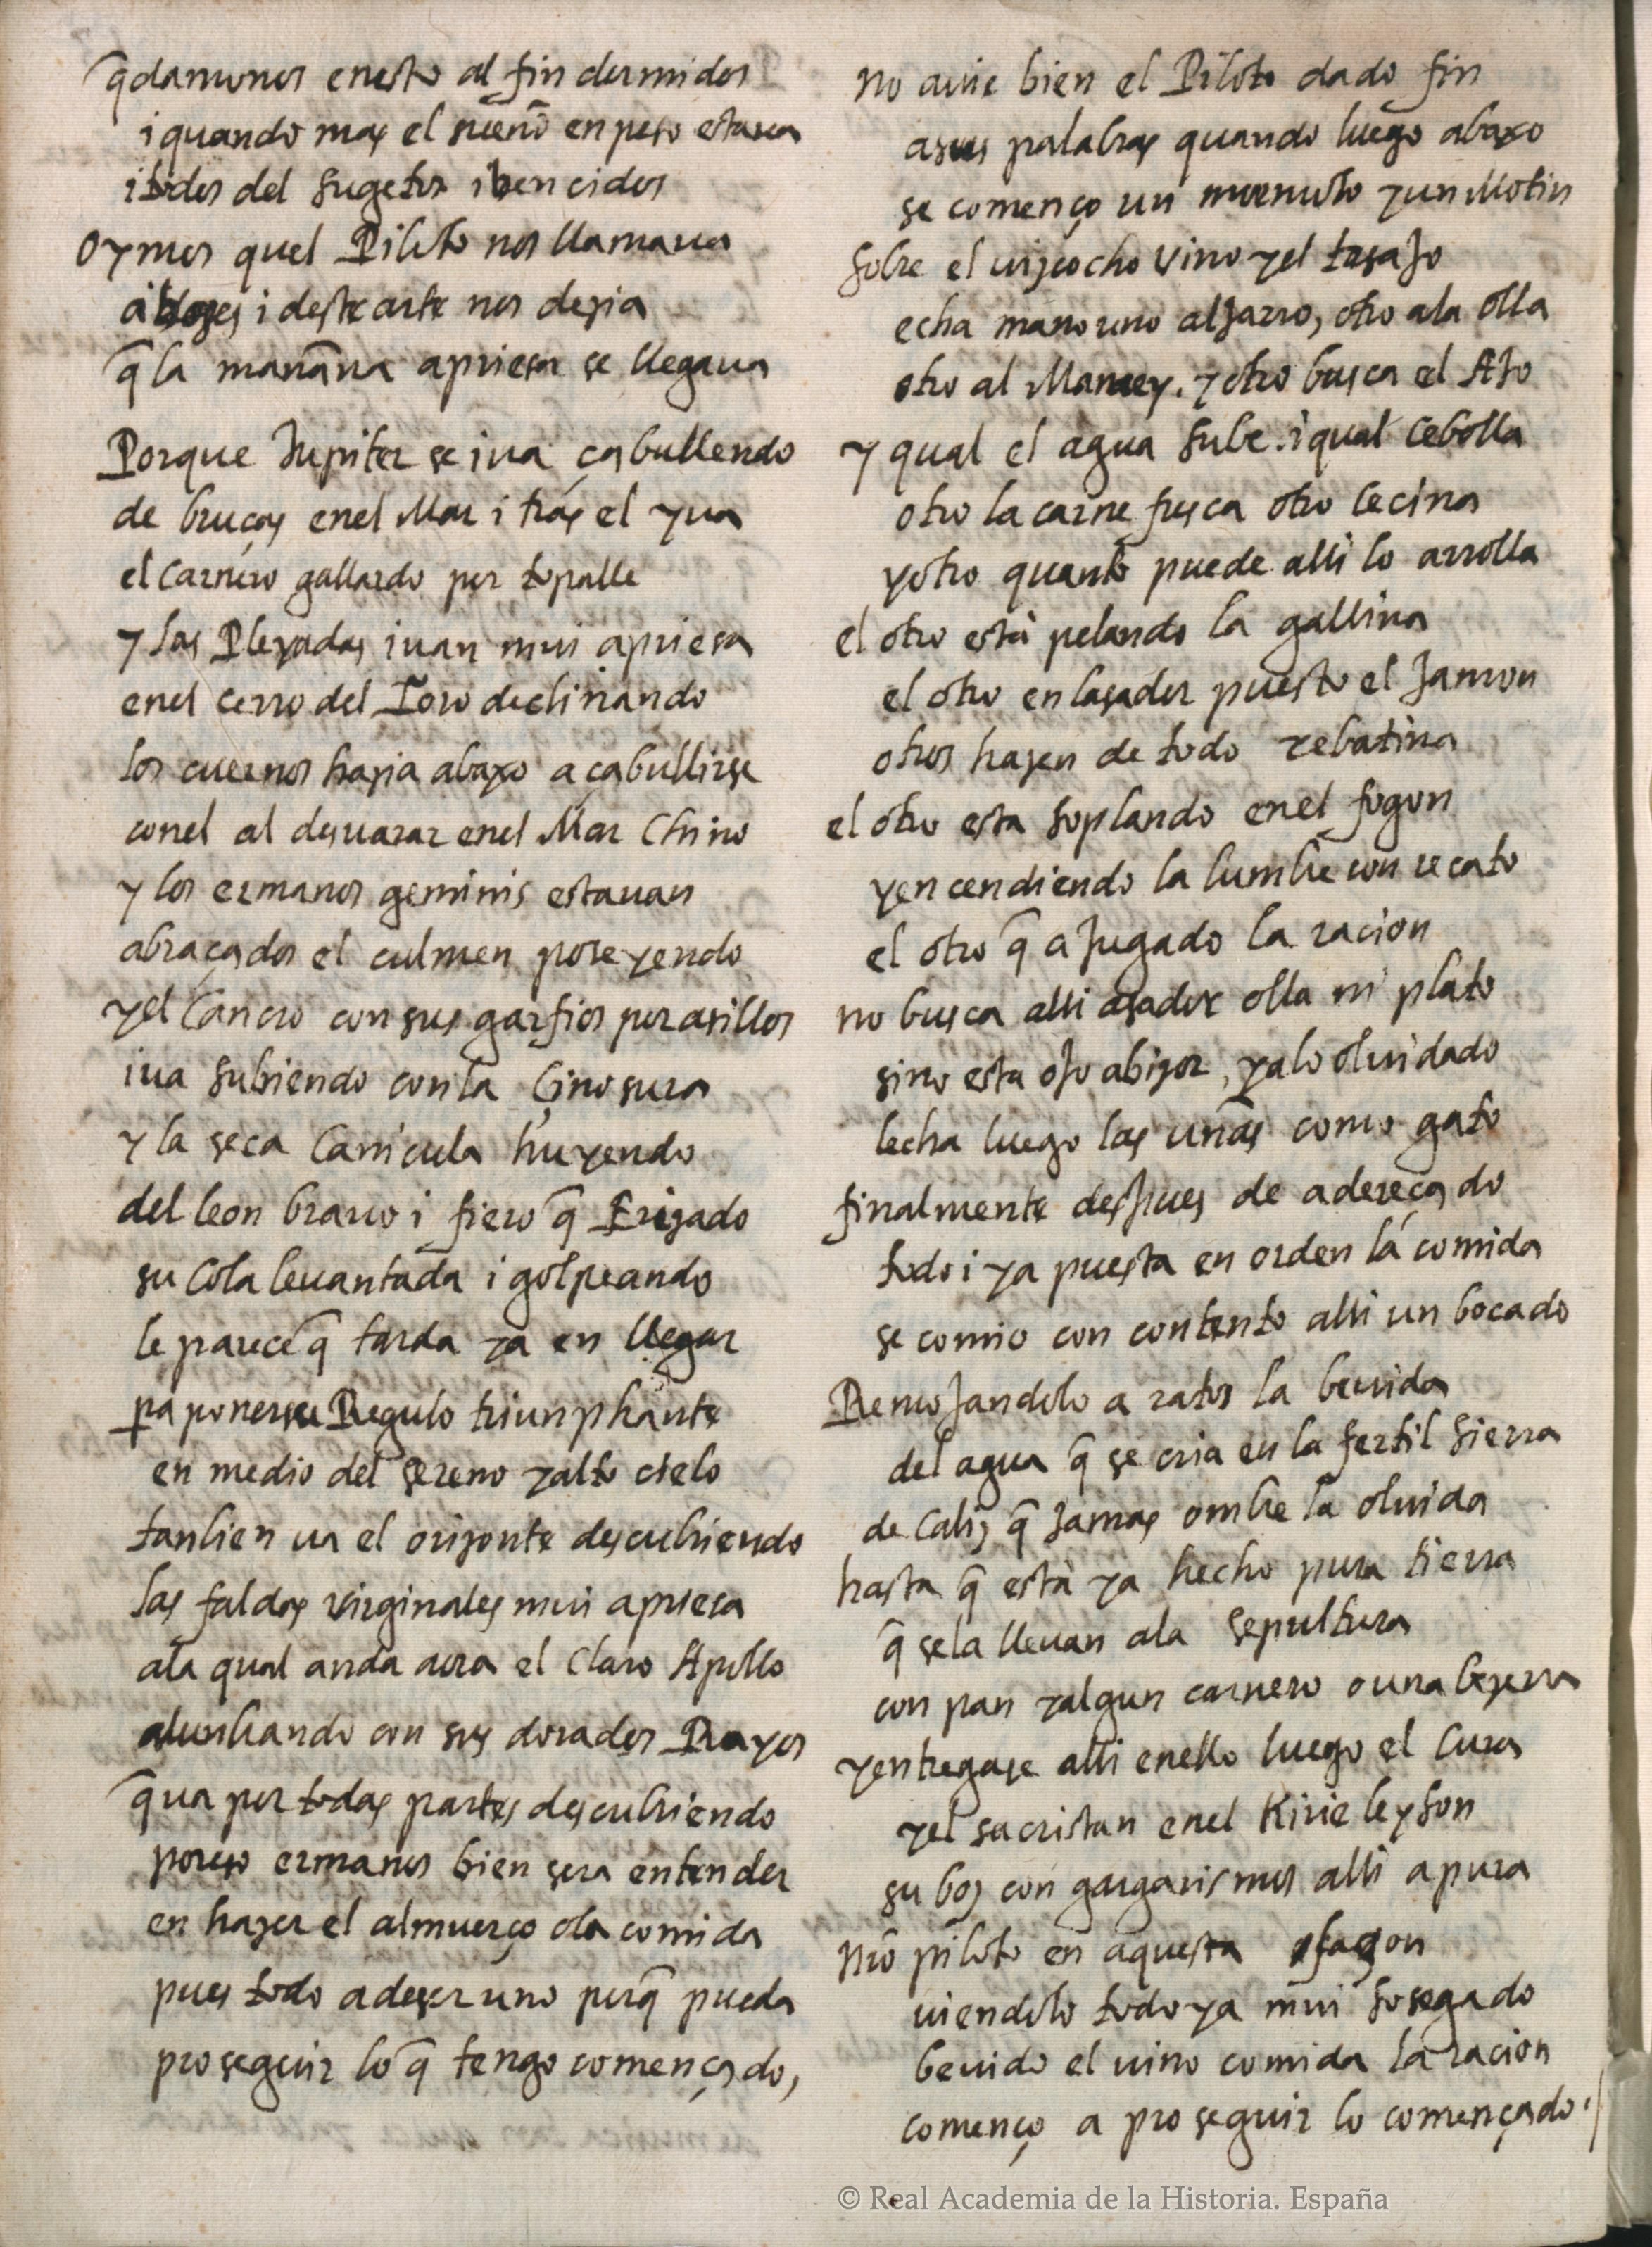 q̃damonos enesto al fin dormidos
i quando mas el sueño en peso estaua
i todos del sugetos i bencidos
oymos quel Piloto nos llamaua
a boses i deste arte nos desia
q̃ la mañana apriesa se llegaua
Porque Jupiter se iua çabullendo
de bruças enel Mar i tras el yua
el carnero gallardo por topalle
y las Pleyadas iuan mui apriesa
enel cerro del Toro declinando
los cuernos hazia abaxo a çabullirse
conel al desuarar enel Mar Chino
y los ermanos geminis estauan
abraçados el culmen poseyendo
yel Cancro con sus garfios por asillos
iua subiendo con la Çinosura
y la seca Canicula huyendo
del leon brauo i fiero q̃ Erizado
su Cola leuantada i golpeando
le parece q̃ tarda ya en llegar
pa ponerse Regulo triunphante
en medio del sereno y alto cielo
tanbien ua el orizonte descubriendo
las faldas virginales mui apriesa
ala qual anda aora el Claro Apollo
alunbrando con sus dorados Rayos
q̃ ua por todas partes descubriendo
poreso ermanos bien sera entender
en hazer el almuerço ola comida
pues todo a deser uno porq̃ pueda
proseguir lo q̃ tengo començado,
no auie bien el Piloto dado fin
asus palabras quando luego abaxo
se començo un mormollo y un Motin
sobre el uizcocho vino yel tasajo
echa mano uno al Jarro, otro ala olla
otro al Mamey. y otro busca el Ajo
y qual el agua sube. i qual cebolla
otro la carne fresca otro cecina
yotro quanto puede alli lo arrolla
el otro está pelando la gallina
el otro en lasador puesto el Jamon
otros hazen de todo rebatina
el otro esta soplando enel fogon
yencendiendo la lumbre con recato
el otro q̃ a Jugado la racion
no busca alli asador olla ni plato
sino esta ojo abizor, yalo oluidado
lecha luego las uñas como gato
finalmente despues de adereçado
todo i ya puesta en orden la comida
se comio con contento alli un bocado
Remojandolo a ratos la beuida
del agua q̃ se cria en la fertil Sierra
de Caliz q̃ Jamas ombre la oluida
hasta q̃ está ya hecho pura tierra
q̃ sela lleuan ala sepultura
con pan y algun carnero o una bezerra
yentregase alli enello luego el Cura
yel sacristan enel Kirie leyson
su boz con gargarismos alli apura
nr̃o piloto en aquesta sason
uiendolo todo ya mui sosegado
beuido el uino comida la racion
començo a proseguir lo començado.
© Real Academia de la Historia. España